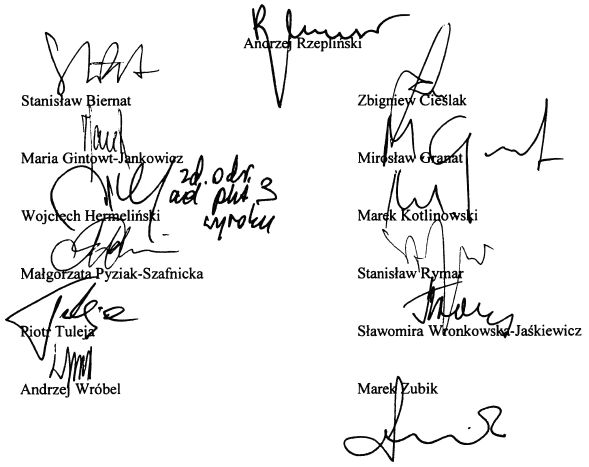 Andrzej Rzepliński
Stanisław Biernat
Zbigniew Cieślak
Maria Gintowt-Jankowicz
Mirosław Granat
zd. odr.
ad pkt. 3
wyroku
Wojciech Hermeliński
Marek Kotlinowski
Małgorzata Pyziak-Szafnicka
Stanisław Rymar
Piotr Tuleja
Sławomira Wronkowska-Jaśkiewicz
Andrzej Wróbel
Marek Zubik